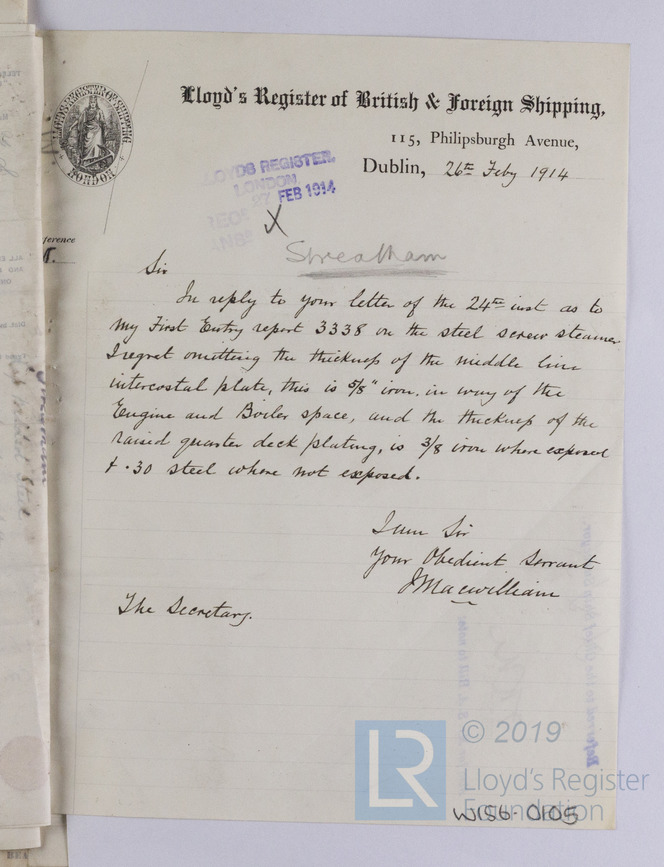 Lloyd's Register of British & Foreign Shipping,
115, Philipsburgh Avenue,
Dublin, 26th Feby 1914
LLOYD'S REGISTER OF SHIPPING
LONDON
LLOYDS REGISTER,
LONDON
27 FEB 1914
X
Streatham
Sir
In reply to your letter of the 24th inst as to
my First Entry report 3338 on the steel screw steamer
I regret omitting the thickness of the middle line
intercostal plate, this is 5/8" iron, in way of the
Engine and Boiler space, and the thickness of the
raised quarter deck plating, is 3/8 iron where exposed
& .30 steel where not exposed.
I am Sir
Your Obedient Servant
J Macwilliam
The Secretary.
LR
© 2019
Lloyd's Register
Foundation
W156-0105